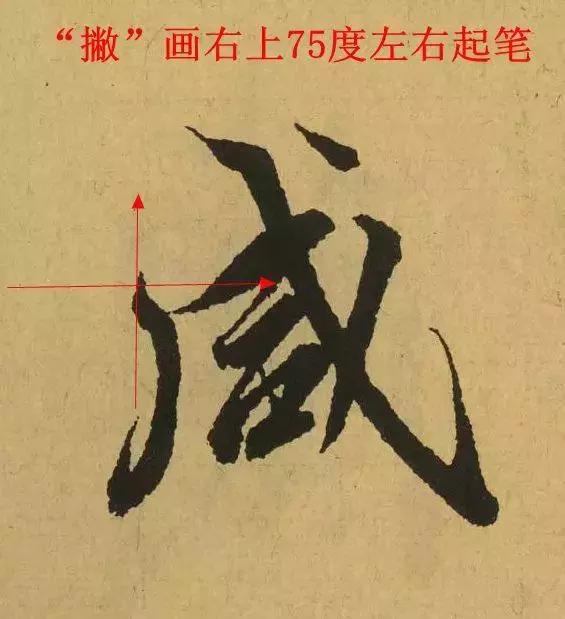 “撇”画右上75度左右起笔
咸